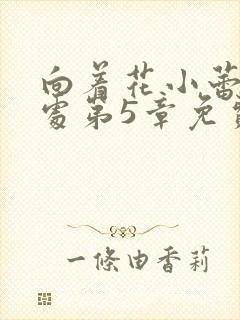 向着花小蕾
处第5章免费
一條由香莉